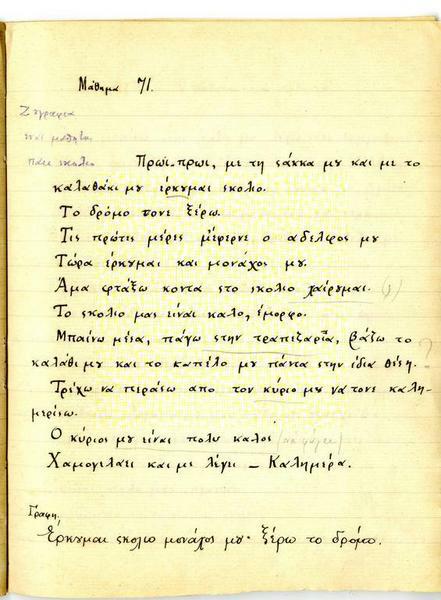 Μάθημα 71.
Ζυγραφια
ται μαθητη
παει ςκολιο
Πρωι-πρωι, με τη ςάκκα μυ και με το
καλαθάκι μυ έρκυμαι ςκολιο.
Το δρόμο τονε ξέρω.
Τις πρώτες μέρες μ'έφερνε ο αδελφος μυ
Τώρα έρκυμαι και μονάχος μυ.
Άμα φτάξω κοντα ςτο ςκολιο χαίρυμαι.
Το ςκολιο μας είναι καλο, έμορφο.
Μπαίνω μέςα, πάγω ςτην τραπεζαρία, βάζω το
καλάθι μυ και το καπέλο μυ πάντα ςτην ίδια θέςη. ?
Τρέχω να περάςω απο τον κύριο μυ να τονε καλη-
μερίςω.
Ο κύριος μυ είναι πολυ καλος
Χαμογιλαει και με λέγει – Καλημέρα.
Γραφη.
Έρκυμαι ςκολιο μονάχος μυ· ξέρω το δρόμο.